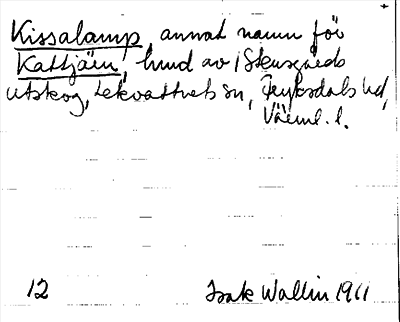 Kissalamp, annat namn för
Kattjärn, hmd av / Skensgårds
utskog, Lekvattnets sn, Fryksdals hd,
Värml. l.
12 Isak Wallin 1911